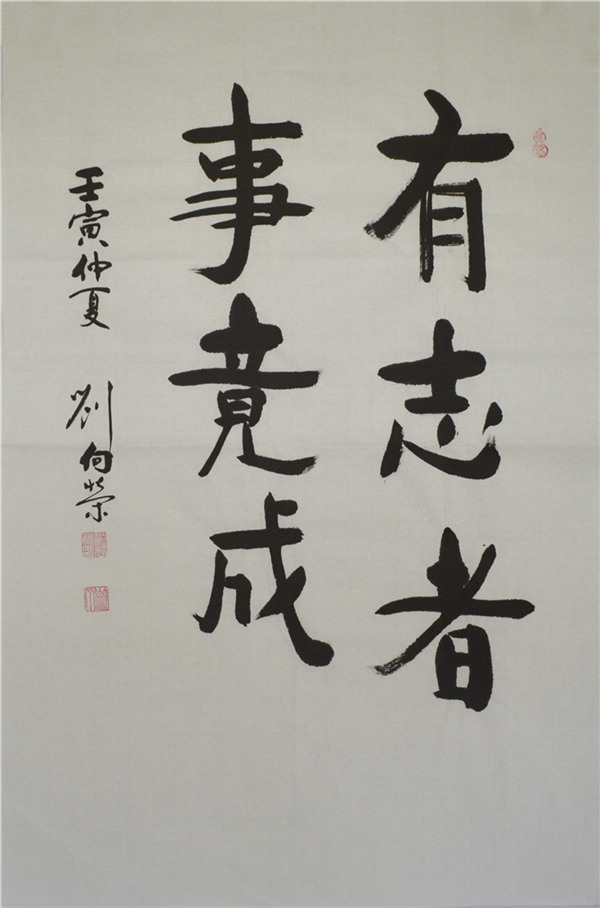 有志者
事竟成
壬寅仲夏 劉向榮